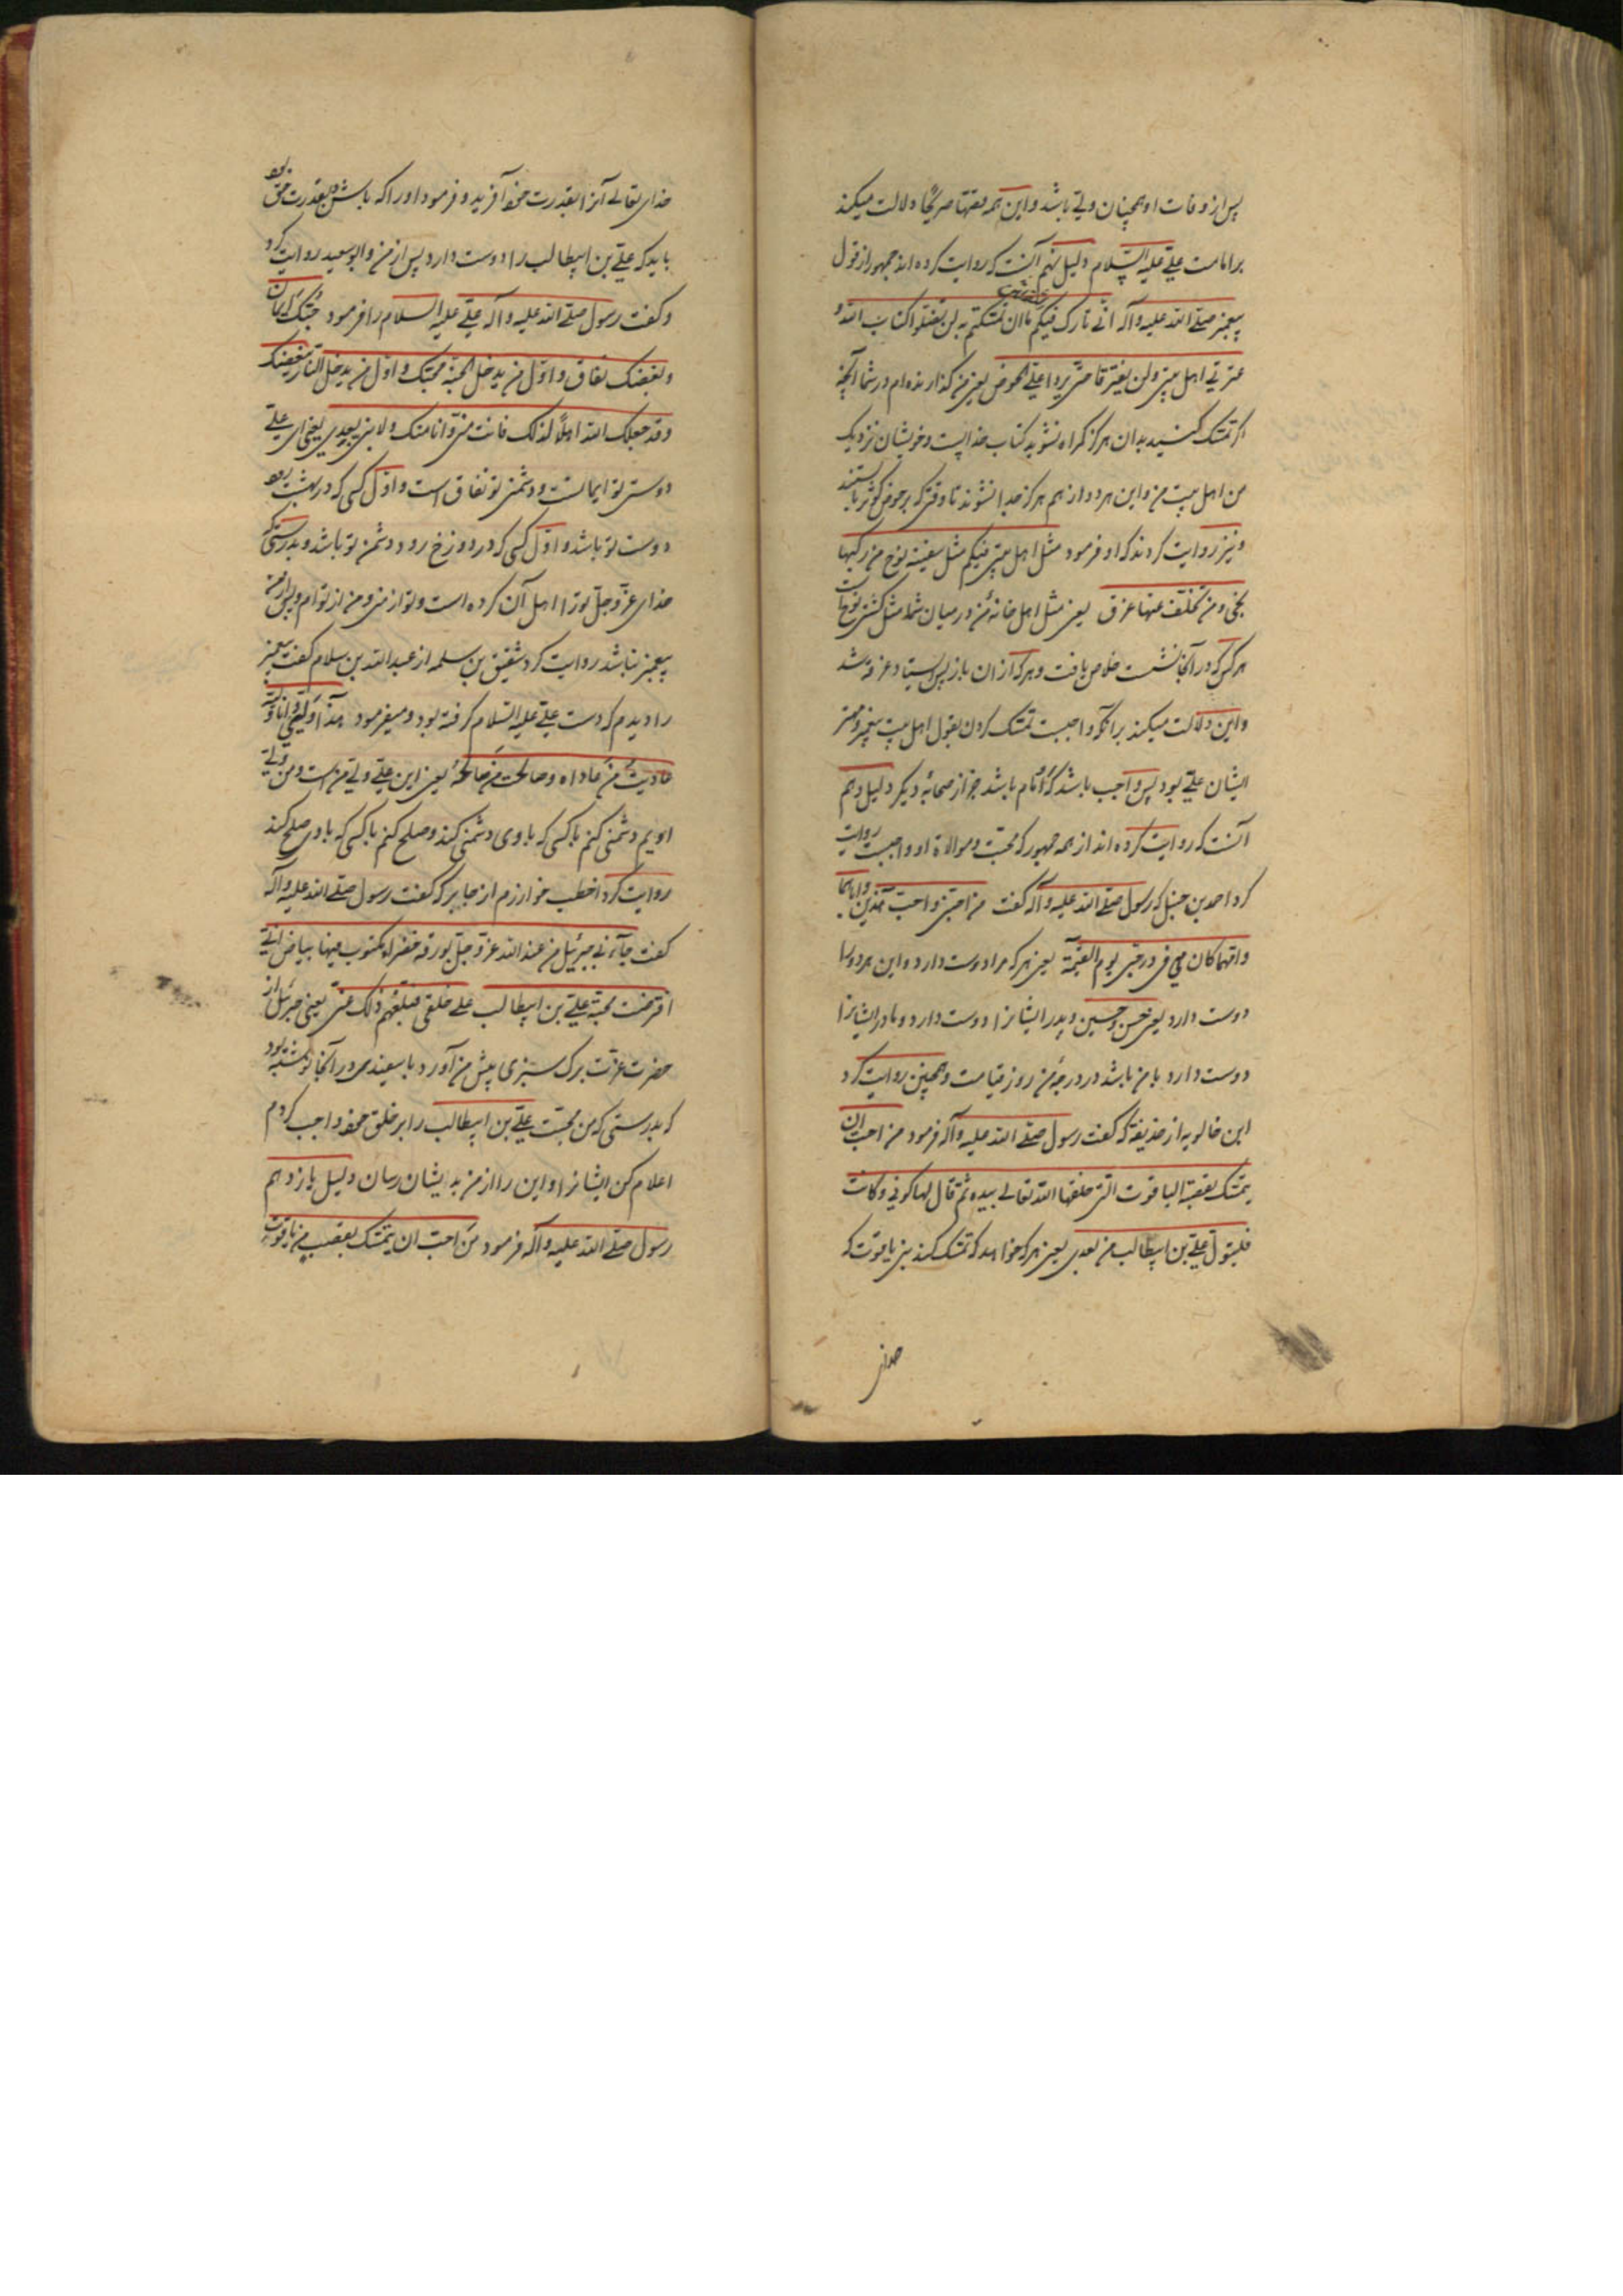 پس از وفات او همچنان ولی باشد و این همه نصها صریحا دلالت میکند
بر امامت علی علیه السلام دلیل نهم آنست که روایت کرده اند جمهور از قول
پیغمبر صلی الله علیه وآله انی تارک فیکم ما ان تمسکتم به لن تضلوا کتاب الله و
عترتی اهل بیتی ولن یفترقا حتی یردا علی الحوض یعنی من گذارنده ام در شما آنچه
اگر تمسک کنید بدان هرگز گمراه نشوید کتاب خداست و خویشان نزدیک
من اهل بیت من و این هر دو از هم هرگز جدا نشوند تا وقتی که بر حوض کوثر با
و نیز روایت کردند که او فرمود مثل اهل بیتی فیکم مثل سفینة نوح من رکبها
نجی ومن تخلف عنها غرق یعنی مثل اهل خانهٔ من در میان شما مثل کشتی نوحست
هر کس که در آنجا نشست خلاص یافت و هر که از ان باز پس ایستاد غرقه شد
و این دلالت میکند بر آنکه واجبست تمسک کردن بقول اهل بیت پیغمبر و مهتر
ایشان علی بود پس واجب باشد که او امام باشد جز از صحابهٔ دیگر دلیل دهم
آنست که روایت کرده اند از همه جمهور که محبت و موالاة او واجبست روایت
کرد احمد بن حنبل که رسول صلی الله علیه وآله گفت من احبنی واحب هذین واباهما
وامهما کان معی فی درجتی یوم القیمة یعنی هر که مرا دوست دارد و این هر دو را
دوست دارد یعنی حسن و حسین و پدر ایشانرا دوست دارد و مادر ایشانرا
دوست دارد با من باشد در درجهٔ من روز قیامت و همچنین روایت کرد
ابن خالویه از حذیفه که گفت رسول صلی الله علیه وآله فرمود من احب ان
یتمسک بقصبة الیاقوت التی خلقها الله تعالی بیده ثم قال لها کونی وکانت
فلیتول علی بن ابیطالب من بعدی یعنی هر که خواهد که تمسک کند بنی یاقوت که
خدای
خدای تعالی آنرا بقدرت خود آفرید و فرمود او را که باش بقدرت حق بود
باید که علی بن ابیطالب را دوست دارد پس از من و ابو سعید روایت کرد
و گفت رسول صلی الله علیه وآله علی علیه السلام را فرمود حبک ایمان
وبغضک نفاق واول من یدخل الجنة محبک واول من یدخل النار مبغضک
وقد جعلک الله اهلا لذلک فانت منی وانا منک ولا نبی بعدی یعنی ای علی
دوستی تو ایمانست و دشمنی تو نفاق است و اول کسی که در بهشت رود
دوست تو باشد و اول کسی که در دوزخ رود دشمن تو باشد و بدرستی که
خدای عز وجل تو را اهل آن کرده است و تو از منی و من از تو ام و پس از من
پیغمبر نباشد روایت کرد شقیق بن سلمه از عبد الله بن سلام گفت پیغمبر
را دیدم که دست علی علیه السلام گرفته بود و میفرمود هذا ولیی وانا ولیه
عادیت من عاداه وصالحت من صالحه یعنی این علی ولی من است و من ولی
اویم دشمنی کنم با کسی که با وی دشمنی کند و صلح کنم با کسی که با وی صلح کند
روایت کرد اخطب خوارزم از جابر که گفت رسول صلی الله علیه وآله
گفت جاءنی جبرئیل من عند الله عز وجل بورقة خضراء مکتوب فیها ببیاض انی
افترضت محبة علی بن ابیطالب علی خلقی فبلغهم ذلک عنی یعنی جبرئیل از
حضرت عزت برگ سبزی پیش من آورد با سفیدی در آنجا نوشته بود
که بدرستی که من محبت علی بن ابیطالب را بر خلق خود واجب کردم
اعلام کن ایشانرا و این را از من به ایشان رسان دلیل یازدهم
رسول صلی الله علیه وآله فرمود من احب ان یتمسک بقصب من یاقوت